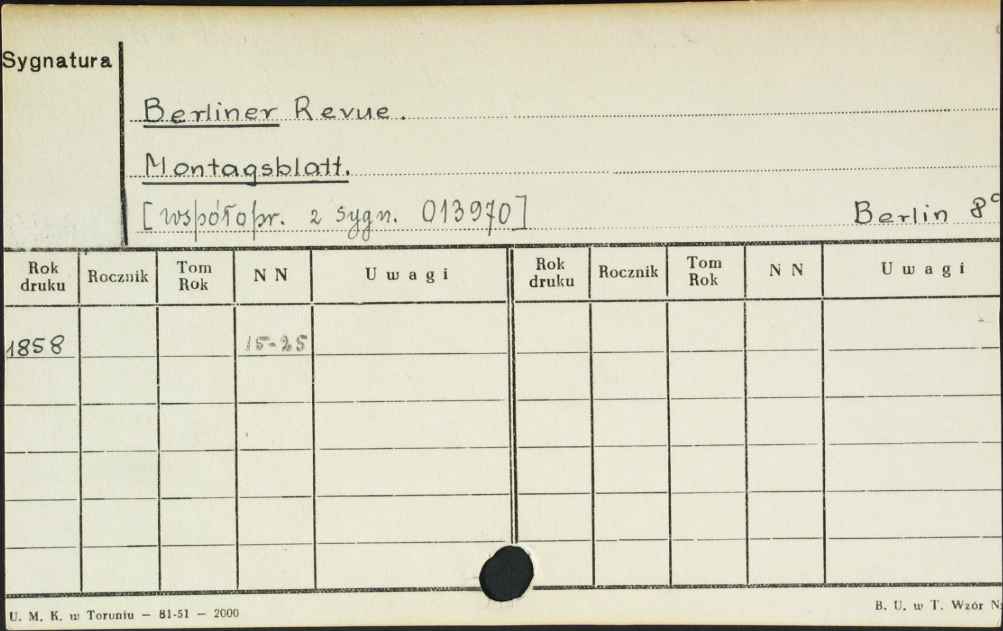 Sygnatura
Berliner Revue.
Montagsblatt.
[współopr. z sygn. 013970]
Berlin 8°
Rok druku Rocznik Tom Rok N N Uwagi Rok druku Rocznik Tom Rok N N Uwagi
1858 15-25
U. M. K. w Toruniu — 81-51 — 2000
B. U. w T. Wzór